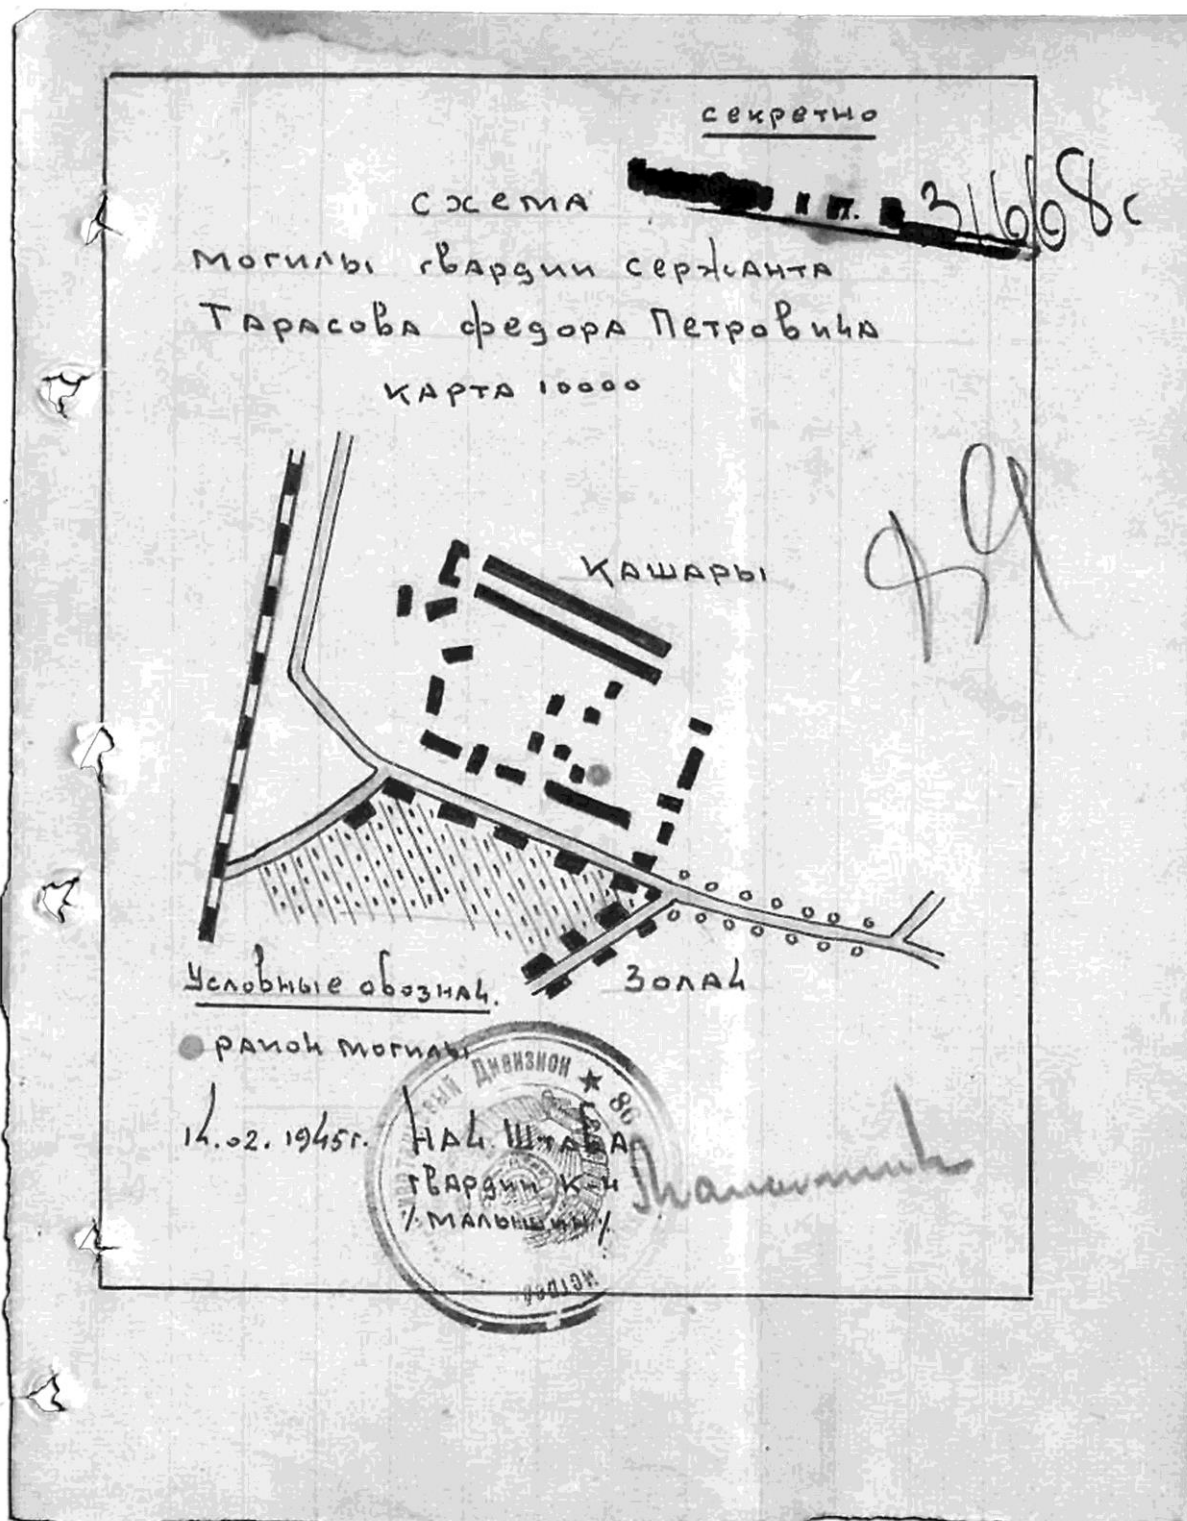 секретно
схема
31668с
могилы гвардии сержанта
Тарасова Федора Петровича
карта 10000
Кашары
Золач
Условные обознач.
район могилы
14.02.1945г.
Нач. Штаба
гвардии к-н
/Малышин/
Дивизион ★ 86